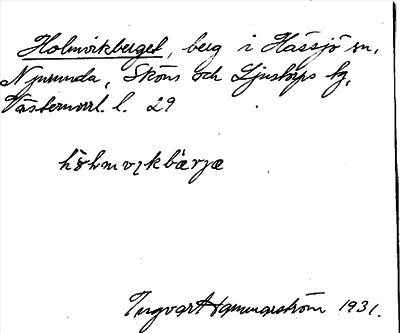 Holmvikberget, berg i Hässjö sn,
Njurunda, Sköns och Ljustorps tg,
Västernorrl. l. 29
hòlmvɩkbærjæ
Ingvar Hammarström 1931.